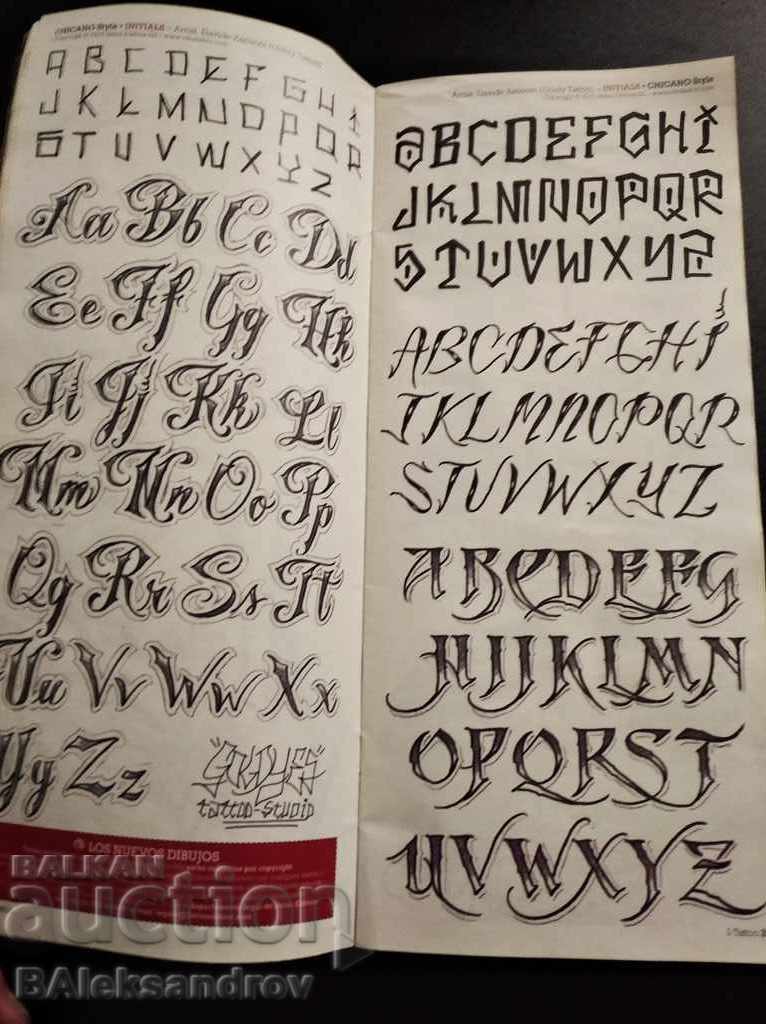 CHICANO Style • INITIALS •
A B C D E F G H I
J K L M N O P Q R
S T U V W X Y Z
Aa Bb Cc Dd
Ee Ff Gg Hh
Ii Jj Kk Ll
Mm Nn Oo Pp
Qq Rr Ss Tt
Uu Vv Ww Xx
Yy Zz
tattoo-studio
LOS NUEVOS DIBUJOS
INITIALS • CHICANO Style
ABCDEFGHI
JKLMNOPQR
STUVWXYZ
ABCDEFGHI
JKLMNOPQR
STUVWXYZ
ABCDEFG
HIJKLMN
OPQRST
UVWXYZ
BALKAN
auction
BAleksandrov